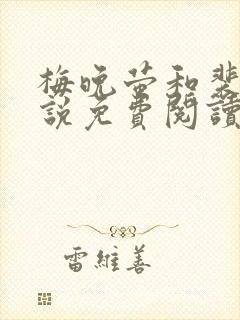 梅晚萤和裴
說免費閱讀
雷維善